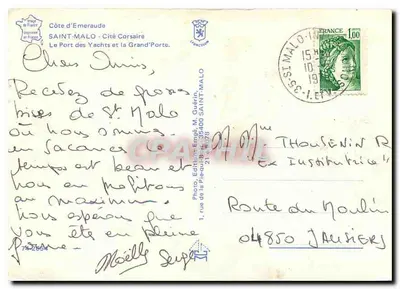 Côte d'Emeraude
SAINT-MALO - Cité Corsaire
Le Port des Yachts et la Grand'Porte.
Chers Amis,
Recevez de grosses
bises de St Malo
où nous sommes
en vacances le
temps est beau et
nous en profitons
au maximum.
Nous espérons que
vous êtes en pleine
forme.
Maëlle Serge
Photo, Edition Expl. M. Guérin,
35400 SAINT-MALO
35-ST MALO
15 H
10-
19
I.ET V.
FRANCE
1,00
M Mme THOUSENIN R
Ex Institutrice
Route du Moulin
04850 JAUSIERS